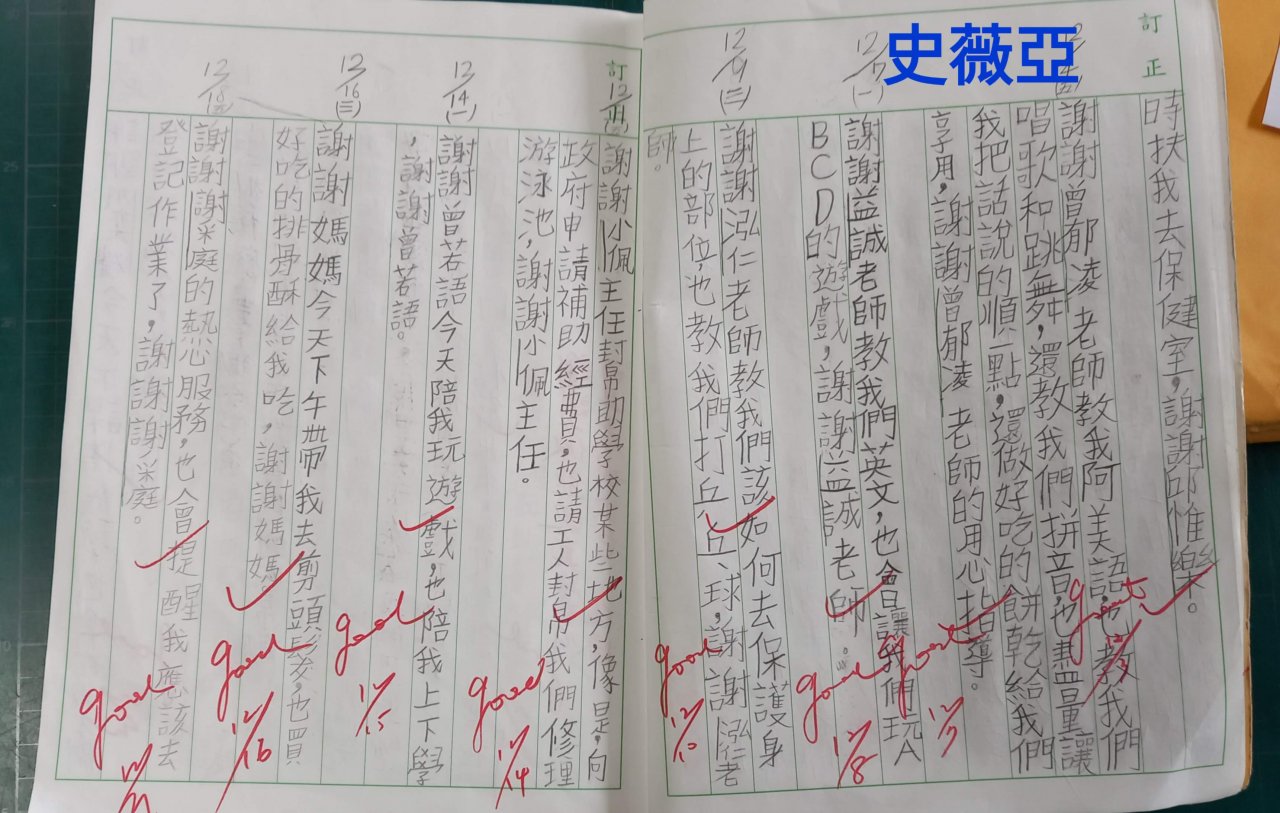 史薇亞
訂正
時扶我去保健室，謝謝邱惟樂。
謝謝曾郁凌老師教我阿美語，也教我們
唱歌和跳舞，還教我們拼音，也盡量讓
我把話說的順一點，還做好吃的餅乾給我們
享用，謝謝曾郁凌老師的用心指導。
12/7(一)
謝謝益誠老師教我們英文，也會讓我們玩A
BCD的遊戲，謝謝益誠老師。
12/9(三)
謝謝泓仁老師教我們該如何去保護身
上的部位，也教我們打乒乓球，謝謝泓仁老
師。
Great 12/3
Great 12/7
good 12/8
good 12/10
訂
謝謝小佩主任幫助學校某些地方，像是，向
政府申請補助經費，也請工人幫我們修理
游泳池，謝謝小佩主任。
12/14(一)
謝謝曾若語今天陪我玩遊戲，也陪我上下學
，謝謝曾若語。
12/16(三)
謝謝媽媽今天下午帶我去剪頭髮，也買
好吃的排骨酥給我吃，謝謝媽媽
12/18
謝謝謝采庭的熱心服務，也會提醒我應該去
登記作業了，謝謝謝采庭。
good 12/14
good 12/15
good 12/16
good